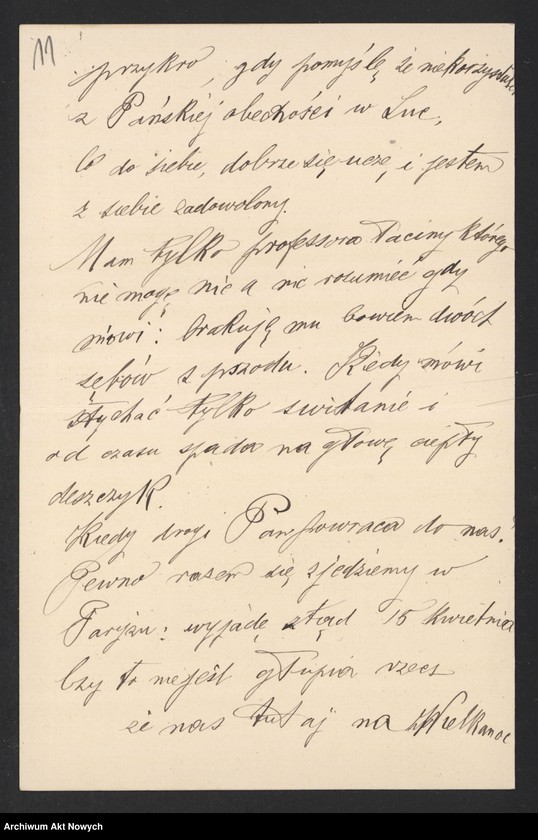 11
przykro, gdy pomyślę że niekorzystałem
z Pańskiej obecności w Luc,
Co do siebie, dobrze się uczę, i jestem
z siebie zadowolony.
Mam tylko professora Łaciny którego
nie mogę nic a nic rozumieć gdy
mówi: brakują mu bowiem dwóch
zębów z przodu. Kiedy mówi
słychać tylko switanie i
od czasu spada na głowę ciepły
deszczyk.
Kiedy drogi Pan powraca do nas?
Pewno razem się zjedziemy w
Paryżu: wyjadę ztąd 15 Kwietnia
Czy to niejest głupia rzecz
że nas tutaj na Wielkanoc
Archiwum Akt Nowych